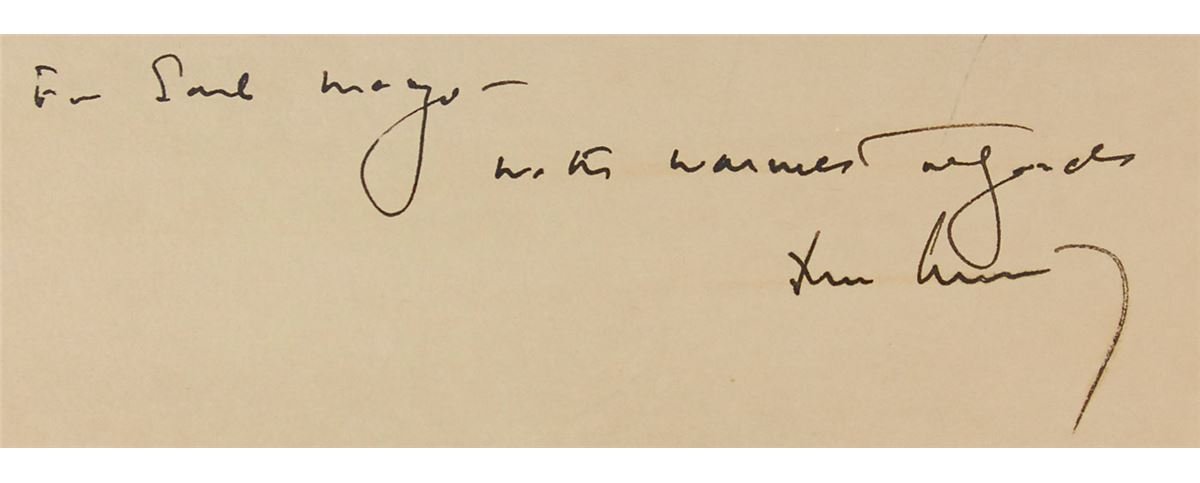 For Saul Mayo –
with warmest regards